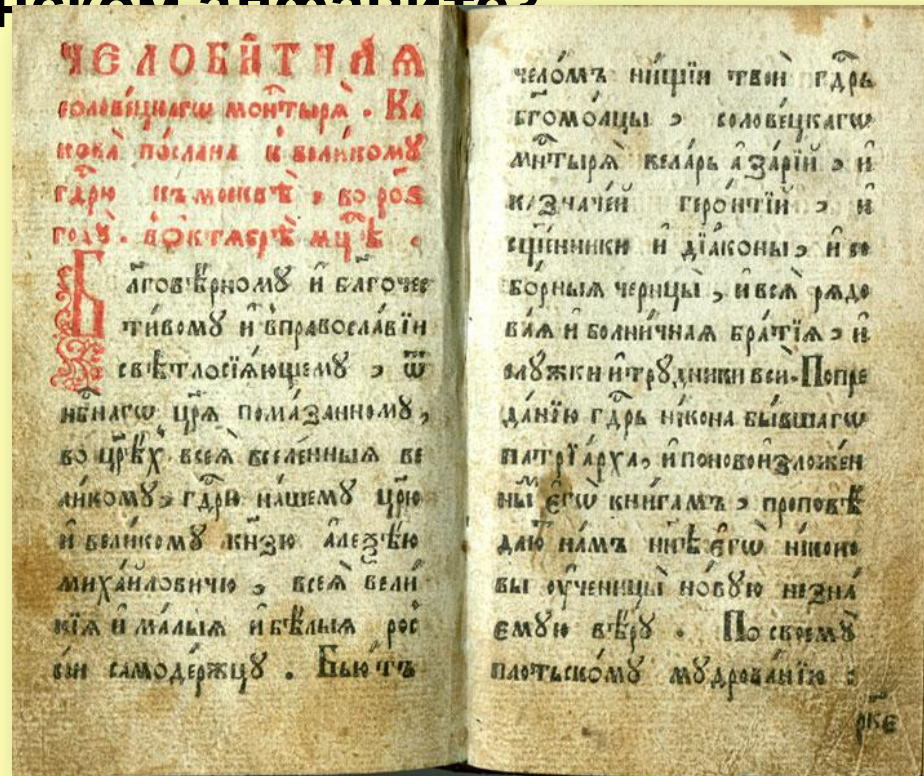 ЧЕЛОБИ́ТНАѦ
соловецкагѡ монⷭ҇тырѧ̀ . Ка
кова̀ по́слана к вели́кому
гдⷭ҇рю къ москвѣ̀ , во рѻѕ
годꙋ̀ . в ѻктѧбрѣ̀ мцⷭ҇ѣ .
Бл҃говѣ́рномꙋ и҆ бл҃гочес
ти́вомꙋ и҆ в правосла́вїи
свѣ́тлосїѧ́ющемꙋ , ѿ
нбⷭ҇нагѡ цр҃ѧ̀ пома́занномꙋ ,
во цр҃ѣ́х всеѧ̀ вселе́нныѧ ве
ли́комꙋ , гдⷭ҇рю на́шемꙋ цр҃ю
и҆ вели́комꙋ кн҃зю а҆леѯѣ́ю
миха́иловичю , всеѧ̀ вели
кїѧ и҆ ма́лыѧ и҆ бѣ́лыѧ рос
сїи самоде́ржцꙋ . Бью́тъ
чело́мъ ни́щїи твоѝ гдⷭ҇рь
бг҃омо́лцы , соловецкагѡ
мнⷭ҇тырѧ̀ ке́ларь а҆за́рїй , и҆
казначе́й геро́нтїй , и҆
сщ҃е́нники и҆ дїѧ́коны , и҆ со
бо́рныѧ черницы̀ , и҆ всѧ̀ рѧдо
ва́ѧ и҆ болни́чнаѧ бра́тїѧ , и҆
слꙋ́жки и҆ трꙋ́дники всѝ . Попре
да́нїю гдⷭ҇рь ни́кона бы́вшагѡ
патрїа́рха , и҆ поновоизложе́н
ны́ є҆гѡ̀ кни́гамъ , проповѣ́
даю́ на́мъ нн҃ѣ є҆гѡ̀ ни́коно
вы оу҆ченицы̀ но́вꙋю незна́
емꙋю вѣ́рꙋ . По своемꙋ̀
пло́тьскомꙋ мꙋдрова́нїю :
рк҃є